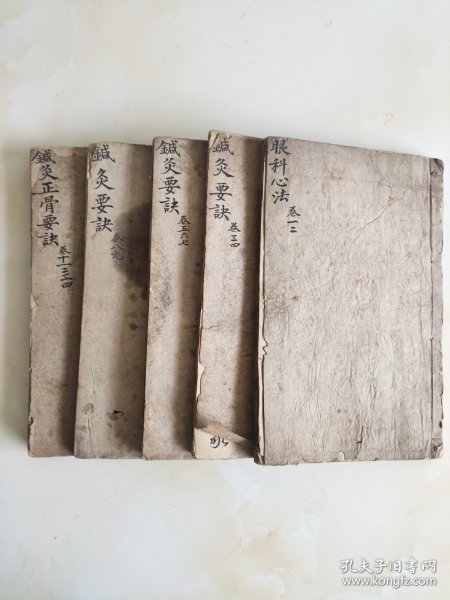 眼科心法
卷一二
鍼灸要訣
卷三四
鍼灸要訣
卷五六七
鍼灸要訣
卷八九
鍼灸正骨要訣
卷十一二三四
孔夫子旧书网
www.kongfz.com